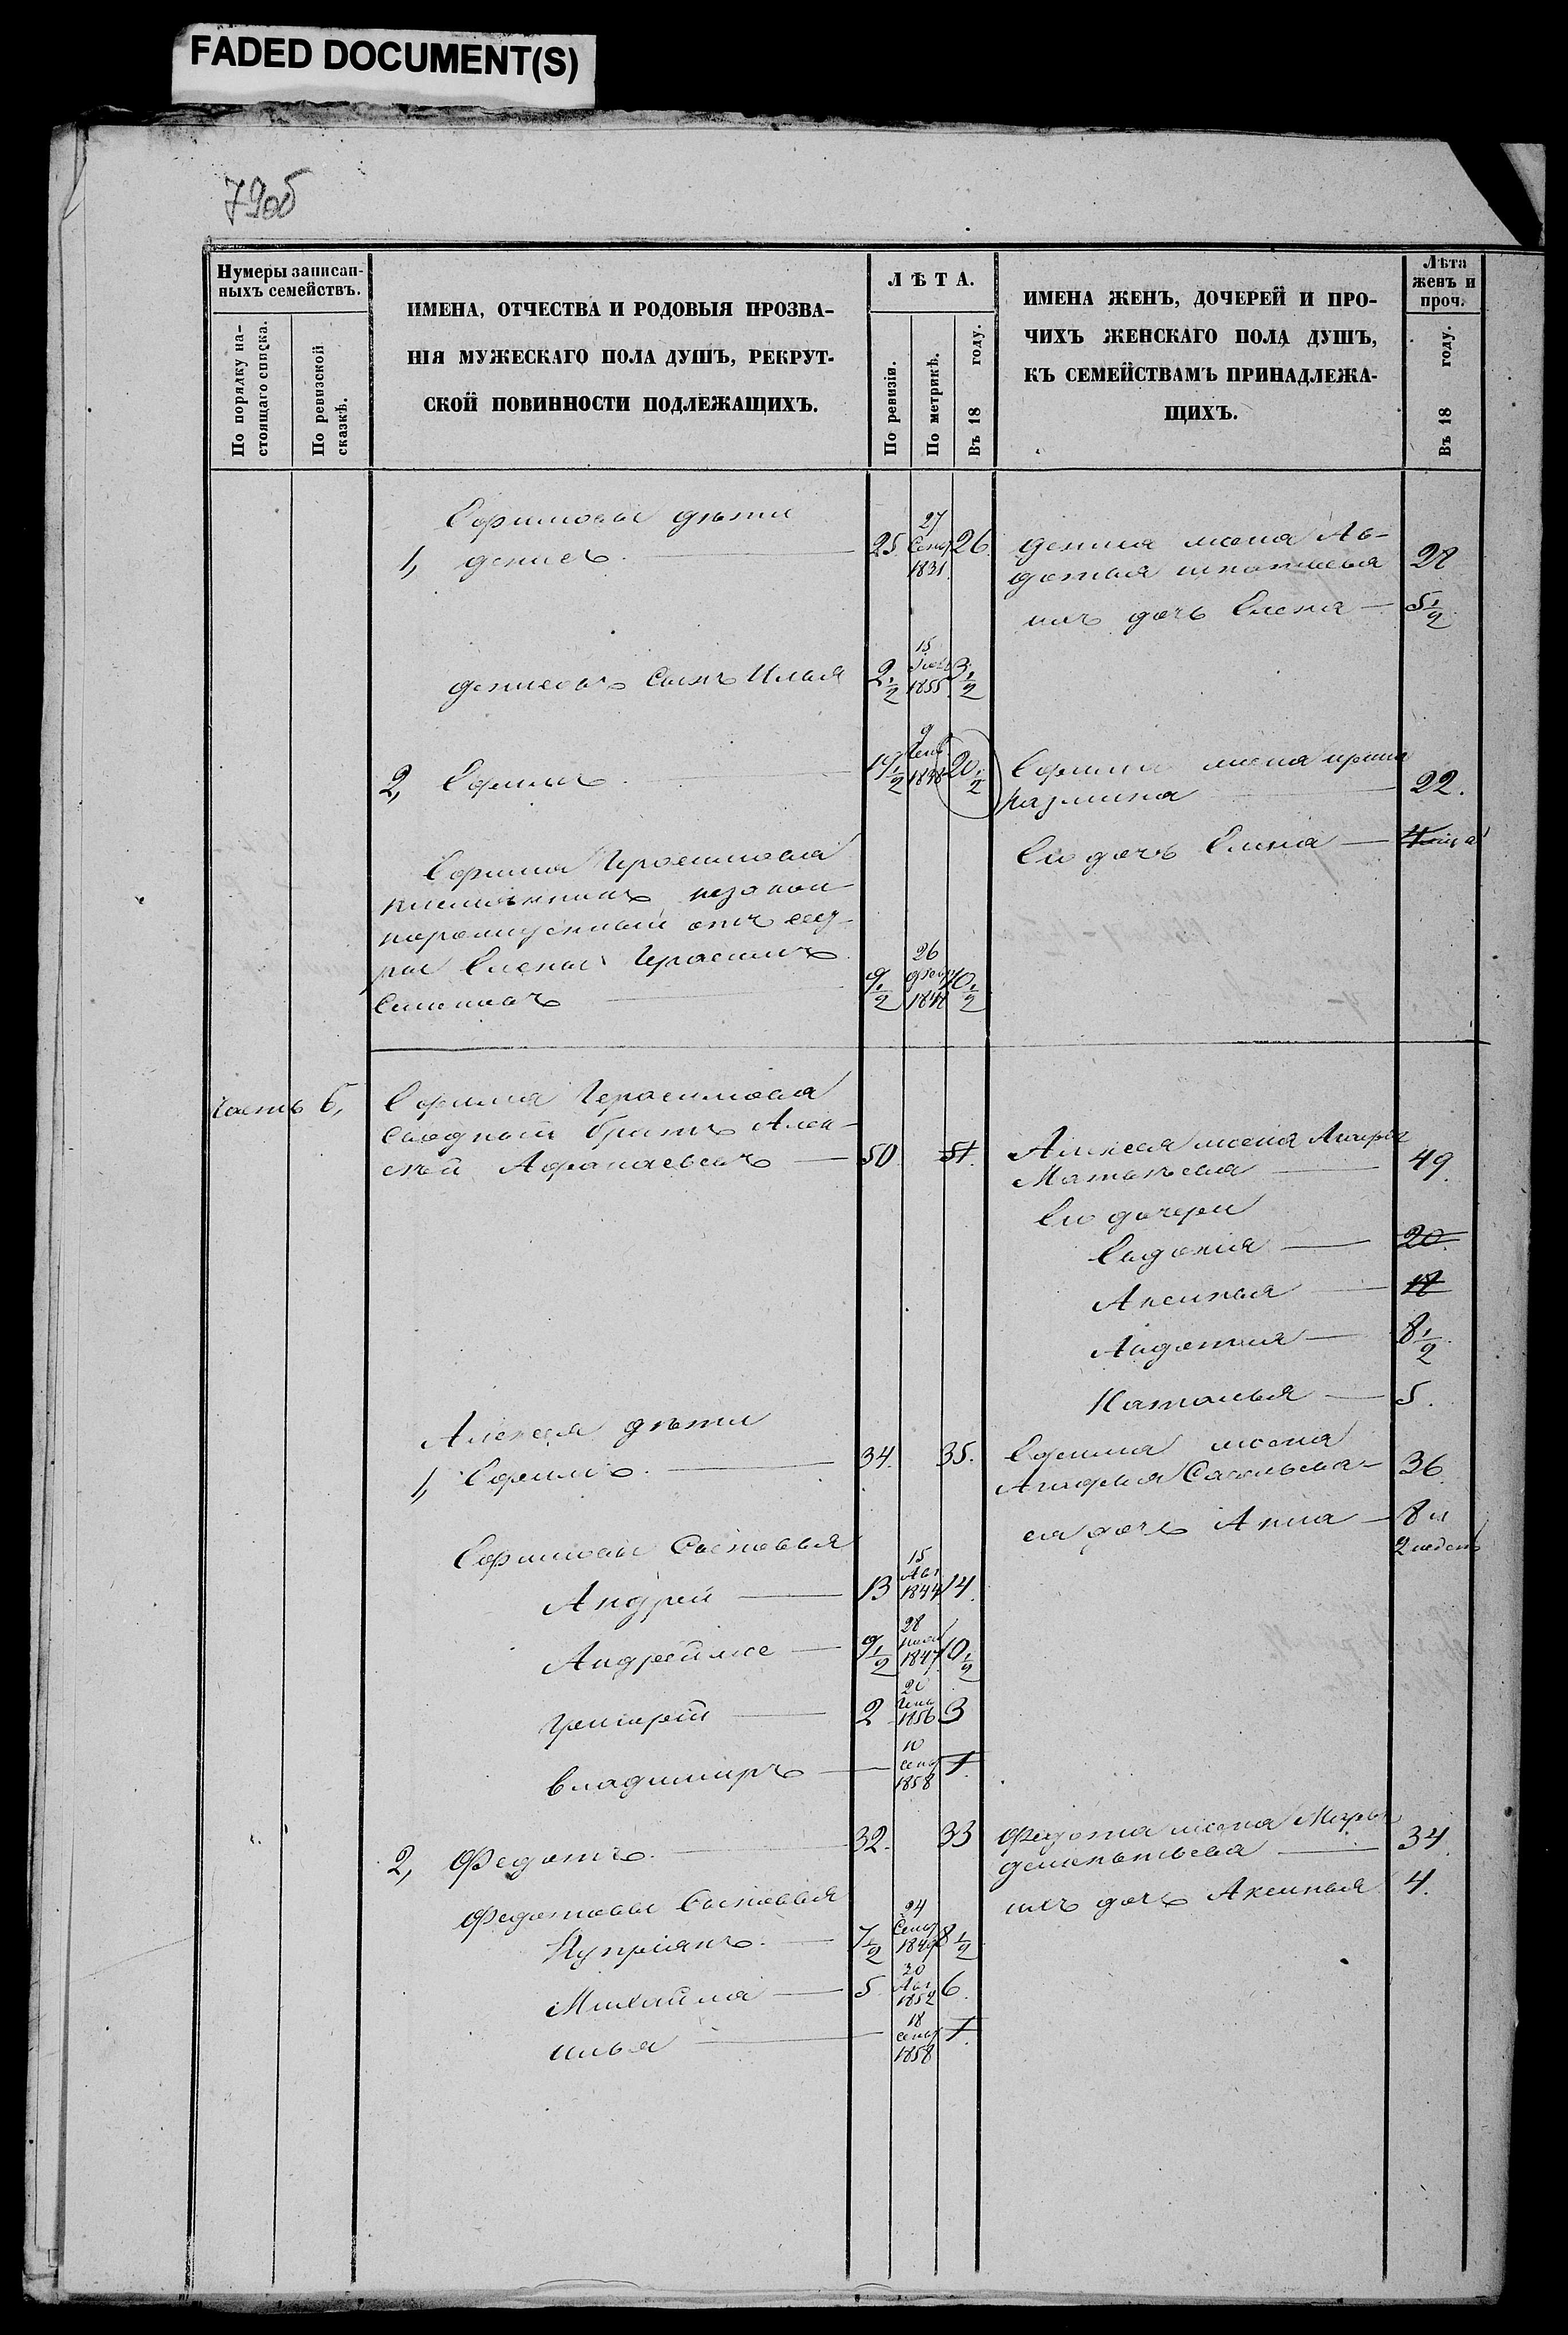 FADED DOCUMENT(S)
79об
Нумеры записан-
ныхъ семействъ.
По порядку на-
стоящаго списка.
По ревизской
сказкѣ.
ИМЕНА, ОТЧЕСТВА И РОДОВЫЯ ПРОЗВА-
НІЯ МУЖЕСКАГО ПОЛА ДУШЪ, РЕКРУТ-
СКОЙ ПОВИННОСТИ ПОДЛЕЖАЩИХЪ.
ЛѢТА.
По ревизіи.
По метрикѣ.
Въ 18 году.
ИМЕНА ЖЕНЪ, ДОЧЕРЕЙ И ПРО-
ЧИХЪ ЖЕНСКАГО ПОЛА ДУШЪ,
КЪ СЕМЕЙСТВАМЪ ПРИНАДЛЕЖА-
ЩИХЪ.
Лѣта
женъ и
проч.
Въ 18 году.
Ефимовы дѣти
1, Денисъ. 25 27 Сент 1831 26
Дениса жена Ав-
дотья Игнатьева 28
ихъ дочь Елена 5 1/2
Денисовъ сынъ Илья 2 1/2 15 1855 3 1/2
2, Ефимъ. 19 1/2 9 Генв 1838 20 1/2
Ефима жена Ирина
Казмина 22.
Его дочь Елена
Ефима Герасимова
племянникъ незакон-
норожденный отъ сест-
ры Елены Герасимъ
9 1/2 26 1848 10 1/2
Часть 6, Ефима Герасимова
сводный братъ Алек-
сѣй Афанасьевъ 50 51.
Алексея жена
Матвѣева 49.
Его дочери
Евдокія 20.
Аксинья 18
Авдотья 8 1/2
Наталья 5.
Алексея дѣти
1, Ефимъ. 34. 35.
Ефима жена
Савельева 36
ея дочь Анна 8 и
2 недель
Ефимовы сыновья
Андрей 13 15 Авг 1844 14.
Андрей же 9 1/2 28 1847 10 1/2
Григорей 2 20 Генв 1856 3
Владимиръ 10 сент 1858 1.
2, Федотъ. 32. 33
Федота жена Марья
Дементьева 34.
ихъ дочь Аксинья. 4.
Федотовы сыновья
Купріянъ. 7 1/2 24 Сент 1849 8 1/2
Михайла 5 30 Авг 1852 6.
Илья 18 сент 1858 1.